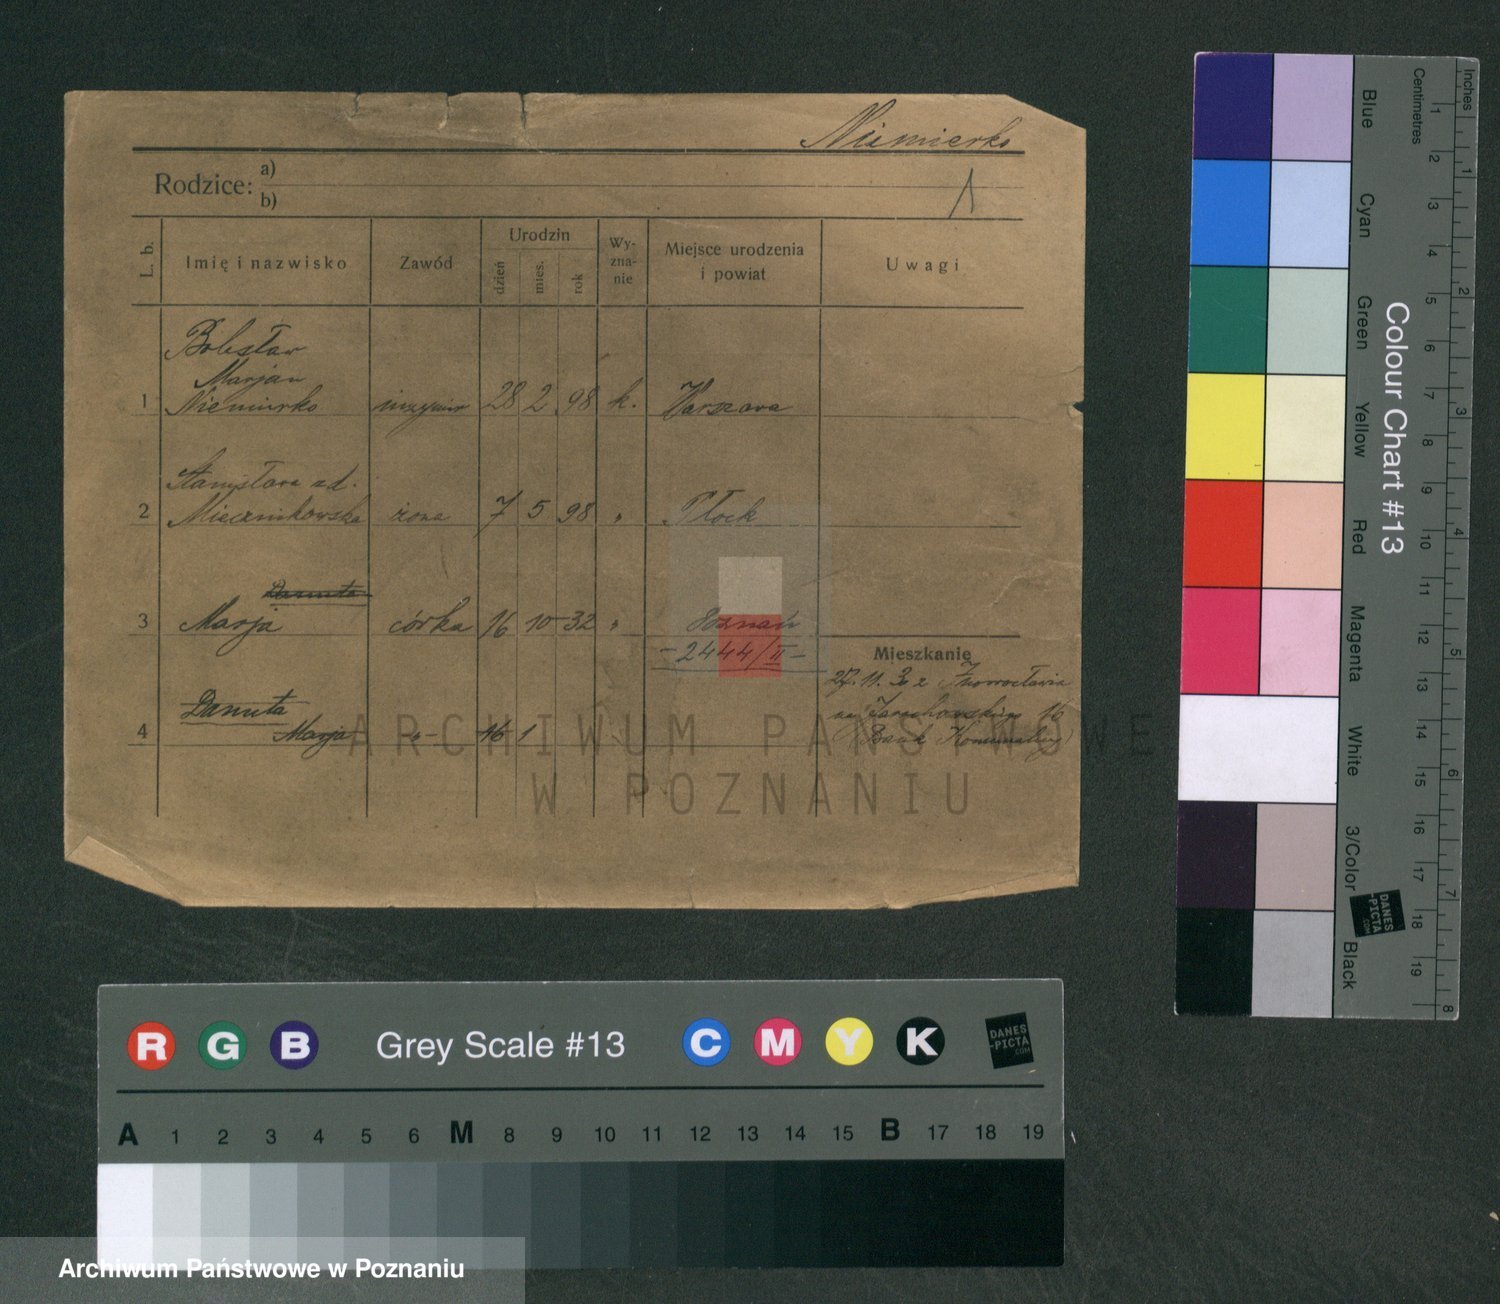 Niemierko
Rodzice: a)
b)
1
L. b.
Imię i nazwisko
Zawód
Urodzin
dzień
mies.
rok
Wy-
zna-
nie
Miejsce urodzenia
i powiat
Uwagi
Bolesław
Marjan
1 Niemirko inżynier 28 2 98 k. Warszawa
Stanisława
2 Miecznikowska żona 7 5 98 " Płock
Danuta
3 Marja córka 16 10 32 " Poznań
-2444/II-
Mieszkanie
27.11.32 Inowrocławia
16
Bank
Danuta
4 Marja -"- 46 1
ARCHIWUM PAŃSTWOWE
W POZNANIU
Grey Scale #13
R G B
C M Y K
DANES
-PICTA
.COM
A 1 2 3 4 5 6 M 8 9 10 11 12 13 14 15 B 17 18 19
Archiwum Państwowe w Poznaniu
Colour Chart #13
Blue
Cyan
Green
Yellow
Red
Magenta
White
3/Color
Black
Centimetres
1 2 3 4 5 6 7 8 9 10 11 12 13 14 15 16 17 18 19
Inches
1 2 3 4 5 6 7 8
DANES
-PICTA
.COM